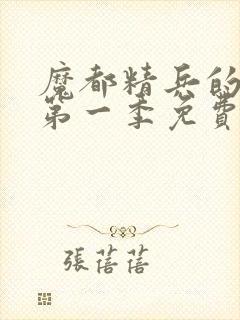 魔都精兵的
第一季免費
張蓓蓓